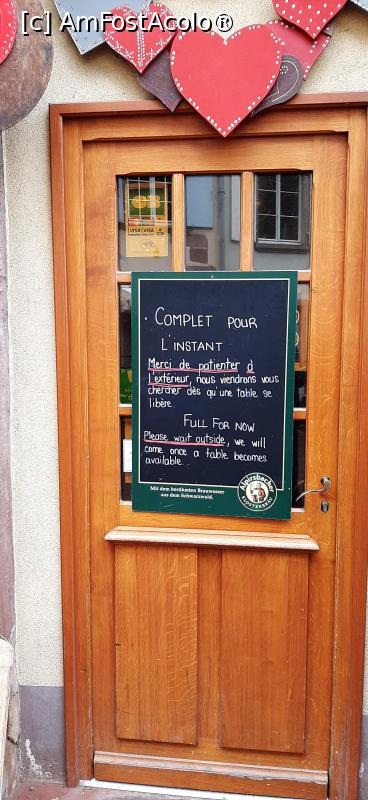 [c] AmFostAcolo®
VISA VISA
. COMPLET POUR
L'INSTANT
Merci de patienter à
l'extérieur, nous viendrons vous
chercher dès qu'une table se
libère.
FULL FOR NOW
Please wait outside, we will
come once a table becomes
available...
Mit dem berühmten Brauwasser
aus dem Schwarzwald.
Alpirsbacher
KLOSTERBRÄU